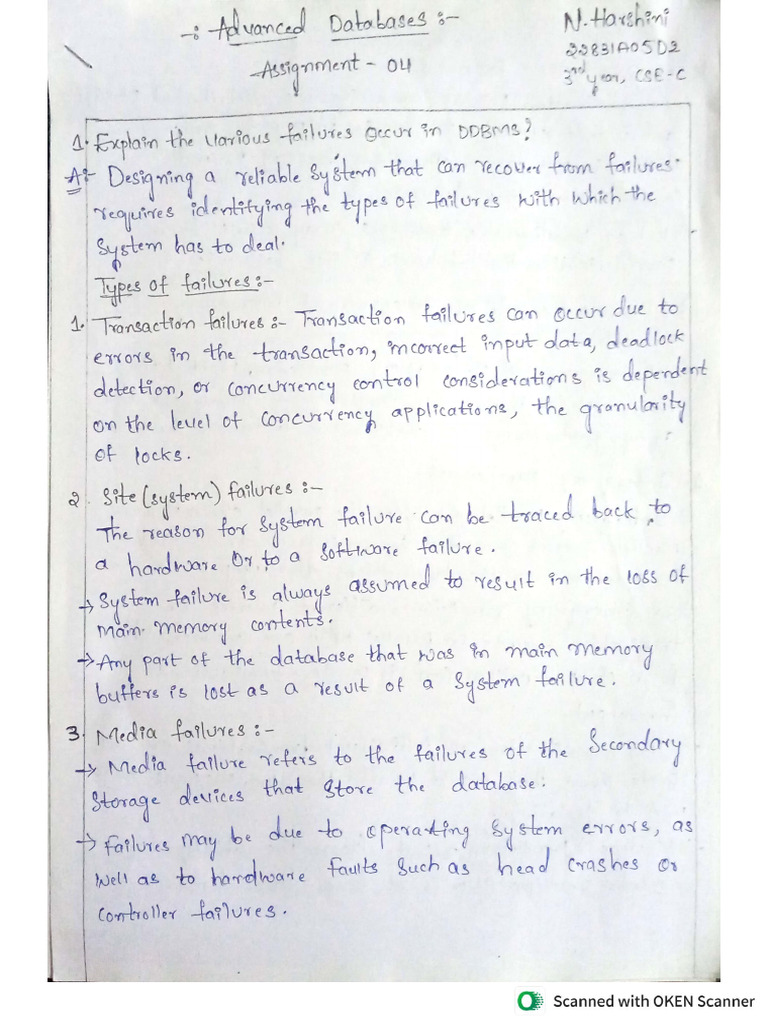 -: Advanced Databases :-
N. Harshini
22831A05D2
Assignment - 04
3rd year, CSE-C
1. Explain the various failures occur in DDBMS?
A:- Designing a reliable system that can recover from failures
requires identifying the types of failures with which the
system has to deal.
Types of failures :-
1. Transaction failures :- Transaction failures can occur due to
errors in the transaction, incorrect input data, deadlock
detection, or concurrency control considerations is dependent
on the level of concurrency applications, the granularity
of locks.
2. Site (system) failures :-
The reason for system failure can be traced back to
a hardware or to a software failure.
→ System failure is always assumed to result in the loss of
main memory contents.
→ Any part of the database that was in main memory
buffers is lost as a result of a system failure.
3. Media failures :-
→ Media failure refers to the failures of the Secondary
storage devices that store the database.
→ Failures may be due to operating system errors, as
well as to hardware faults such as head crashes or
controller failures.
Scanned with OKEN Scanner